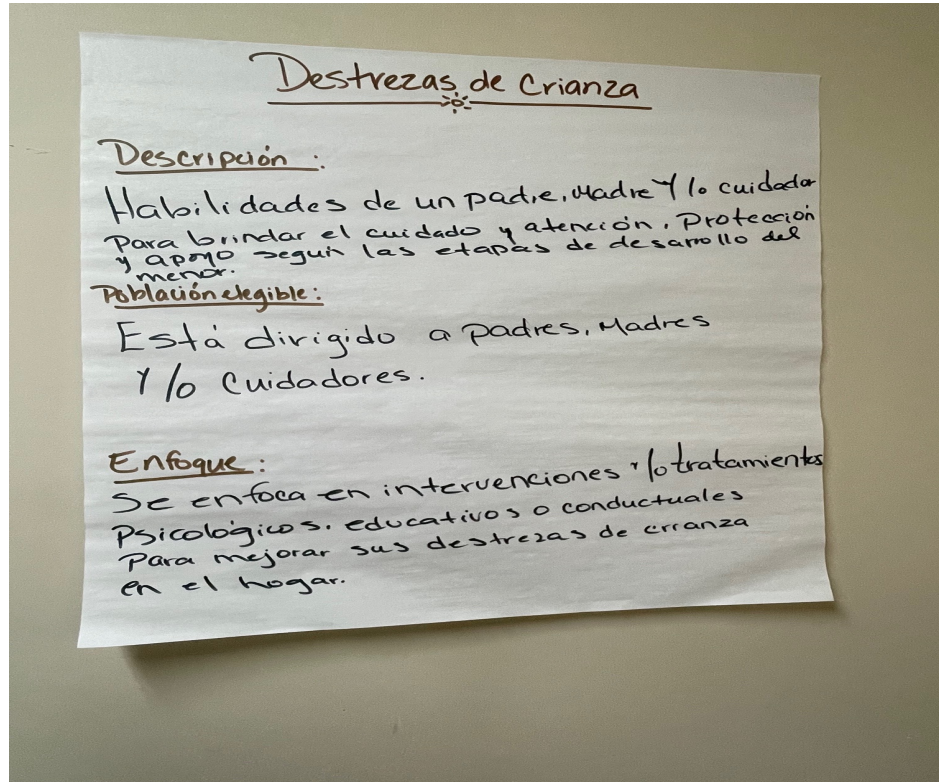 Destrezas de Crianza
Descripción:
Habilidades de un padre, Madre Y/o cuidador
Para brindar el cuidado y atención, Protección
y apoyo según las etapas de desarrollo del
menor.
Población elegible:
Está dirigido a padres, Madres
Y/o Cuidadores.
Enfoque:
Se enfoca en intervenciones Y/o tratamientos
Psicológicos, educativos o conductuales
Para mejorar sus destrezas de crianza
en el hogar.